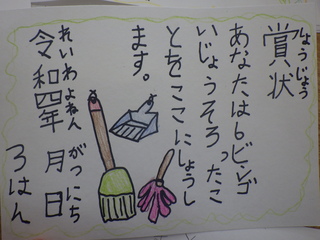 しょうじょう
賞状
あなたは6ビンゴ
いじょうそろったこ
とをここにしょうし
ます。
れいわよねん がつにち
令和四年 月 日
ろはん